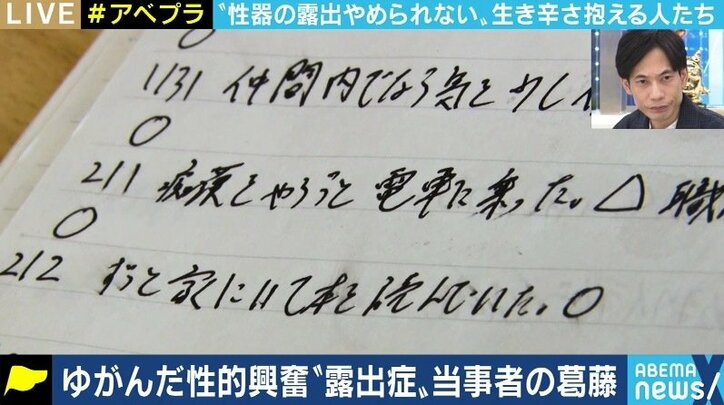 LIVE #アベプラ 〝性器の露出やめられない〟生き辛さ抱える人たち
1131 仲間内でなら気を少し
〇
211 痴漢をやろうと電車に乗った。△ 職
〇
212 ずっと家にいて本を読んでいた。〇
ゆがんだ性的興奮〝露出症〟当事者の葛藤
ABEMA NEWS